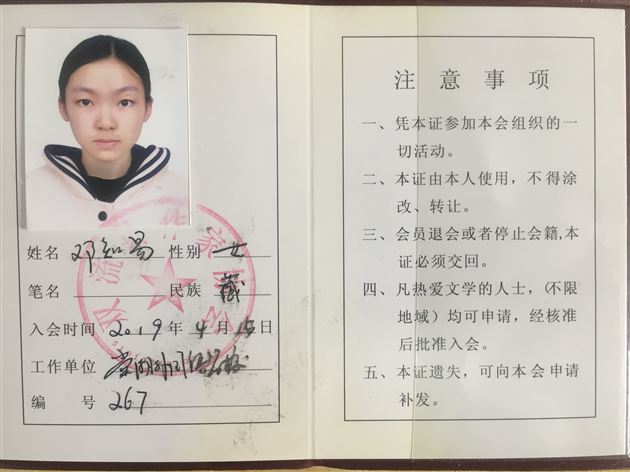 姓名 邓知易 性别 女
笔名 民族 藏
入会时间 2019 年 4 月 15 日
工作单位 棠湖外国语学校
编 号 267
注 意 事 项
一、凭本证参加本会组织的一
切活动。
二、本证由本人使用，不得涂
改、转让。
三、会员退会或者停止会籍,本
证必须交回。
四、凡热爱文学的人士，(不限
地域）均可申请，经核准
后批准入会。
五、本证遗失，可向本会申请
补发。